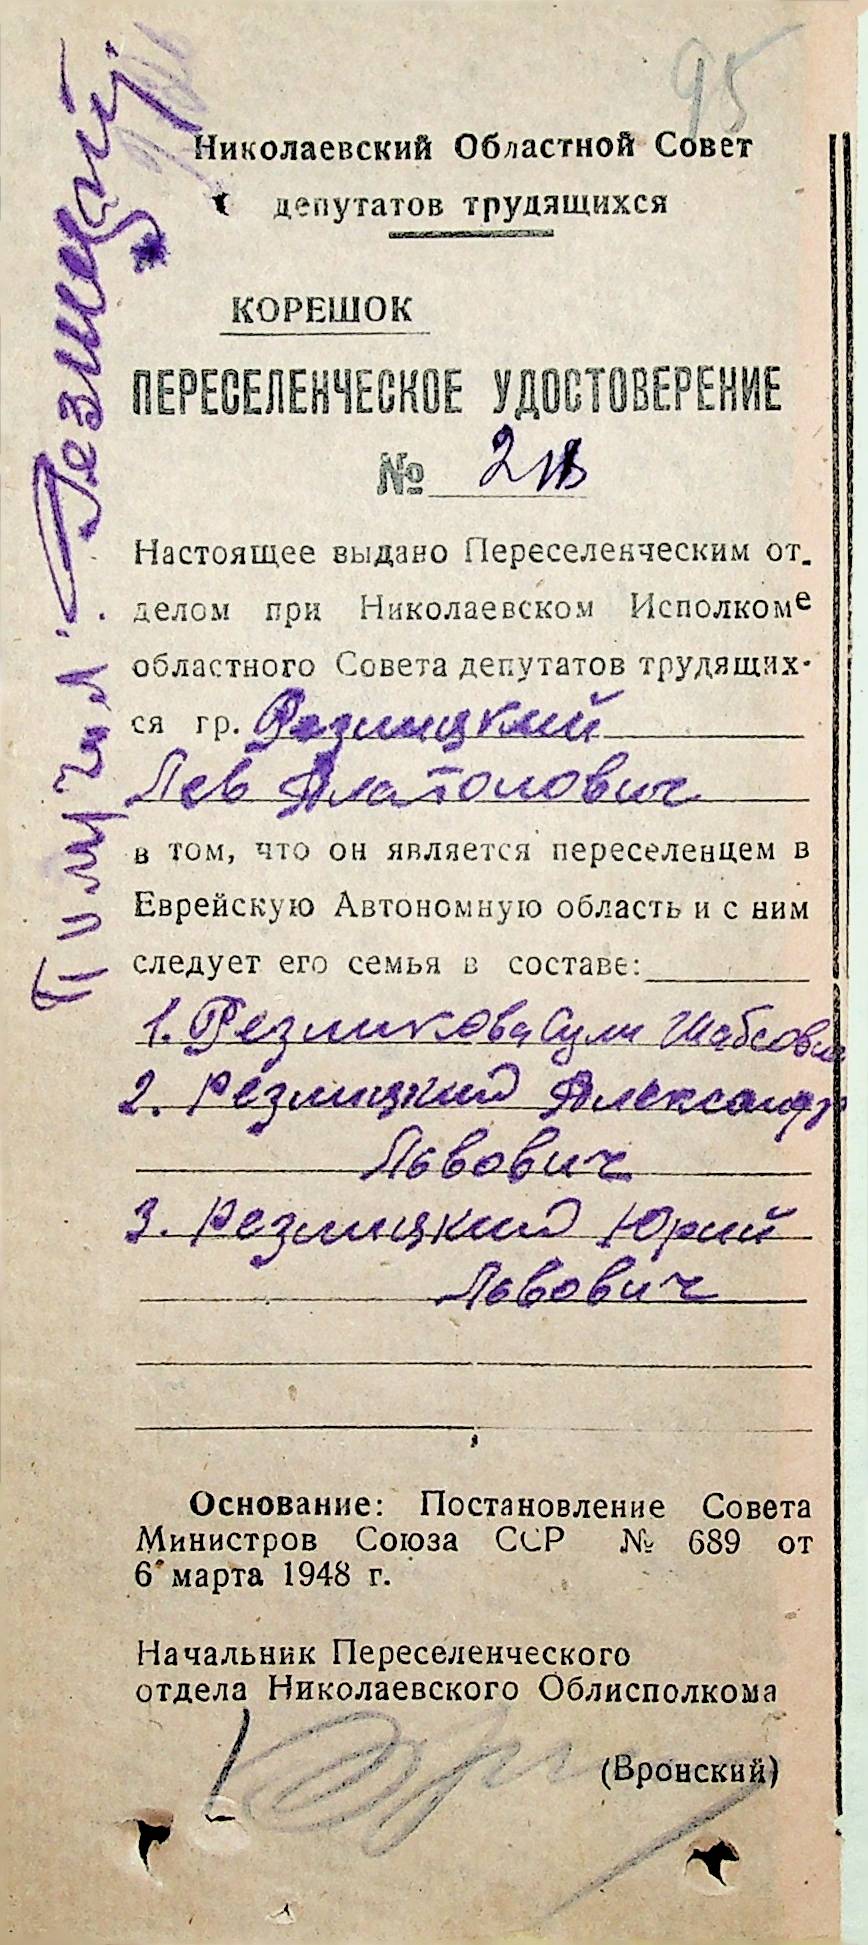 95
Николаевский Областной Совет
депутатов трудящихся
КОРЕШОК
ПЕРЕСЕЛЕНЧЕСКОЕ УДОСТОВЕРЕНИЕ
№
Настоящее выдано Переселенческим от-
делом при Николаевском Исполкоме
областного Совета депутатов трудящих-
ся гр. Резницкий
Лев Платонович
в том, что он является переселенцем в
Еврейскую Автономную область и с ним
следует его семья в составе:
1. Резникова Суля Шабсовна
2. Резницкий Александр
Львович
3. Резницкий Юрий
Львович
Основание: Постановление Совета
Министров Союза ССР № 689 от
6 марта 1948 г.
Начальник Переселенческого
отдела Николаевского Облисполкома
(Вронский)
Получил: Резницкий